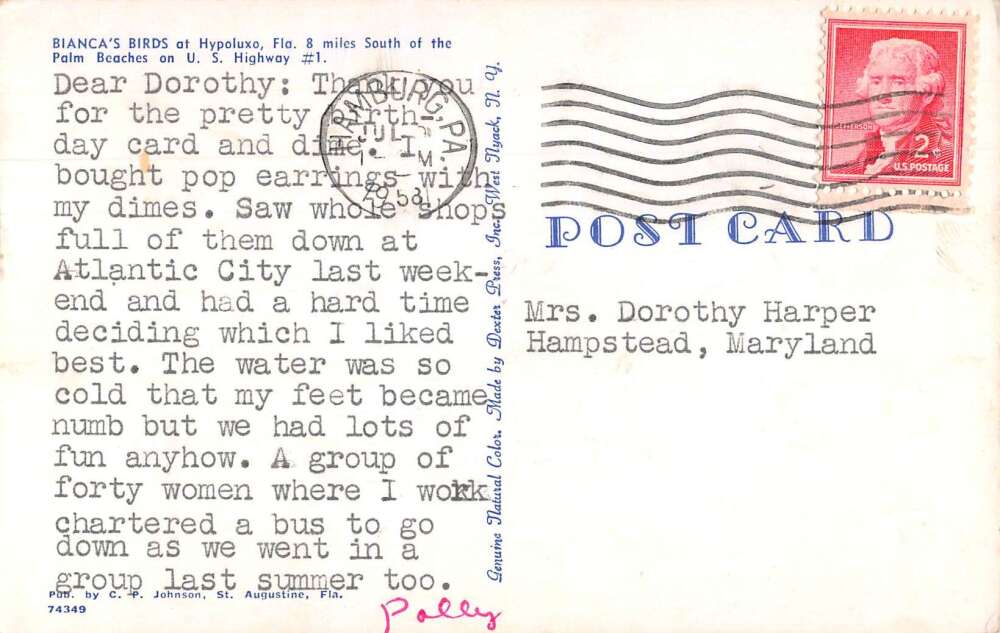 BIANCA'S BIRDS at Hypoluxo, Fla. 8 miles South of the
Palm Beaches on U. S. Highway #1.
Dear Dorothy: Thank you
for the pretty birth-
day card and dime. I
bought pop earrings with
my dimes. Saw whole shops
full of them down at
Atlantic City last week-
end and had a hard time
deciding which I liked
best. The water was so
cold that my feet became
numb but we had lots of
fun anyhow. A group of
forty women where I work
chartered a bus to go
down as we went in a
group last summer too.
Polly
Pub. by C. P. Johnson, St. Augustine, Fla.
74349
Genuine Natural Color. Made by Dexter Press, Inc., West Nyack, N. Y.
PA.
JUL
M.
1958
JEFFERSON
2¢
U.S. POSTAGE
POST CARD
Mrs. Dorothy Harper
Hampstead, Maryland